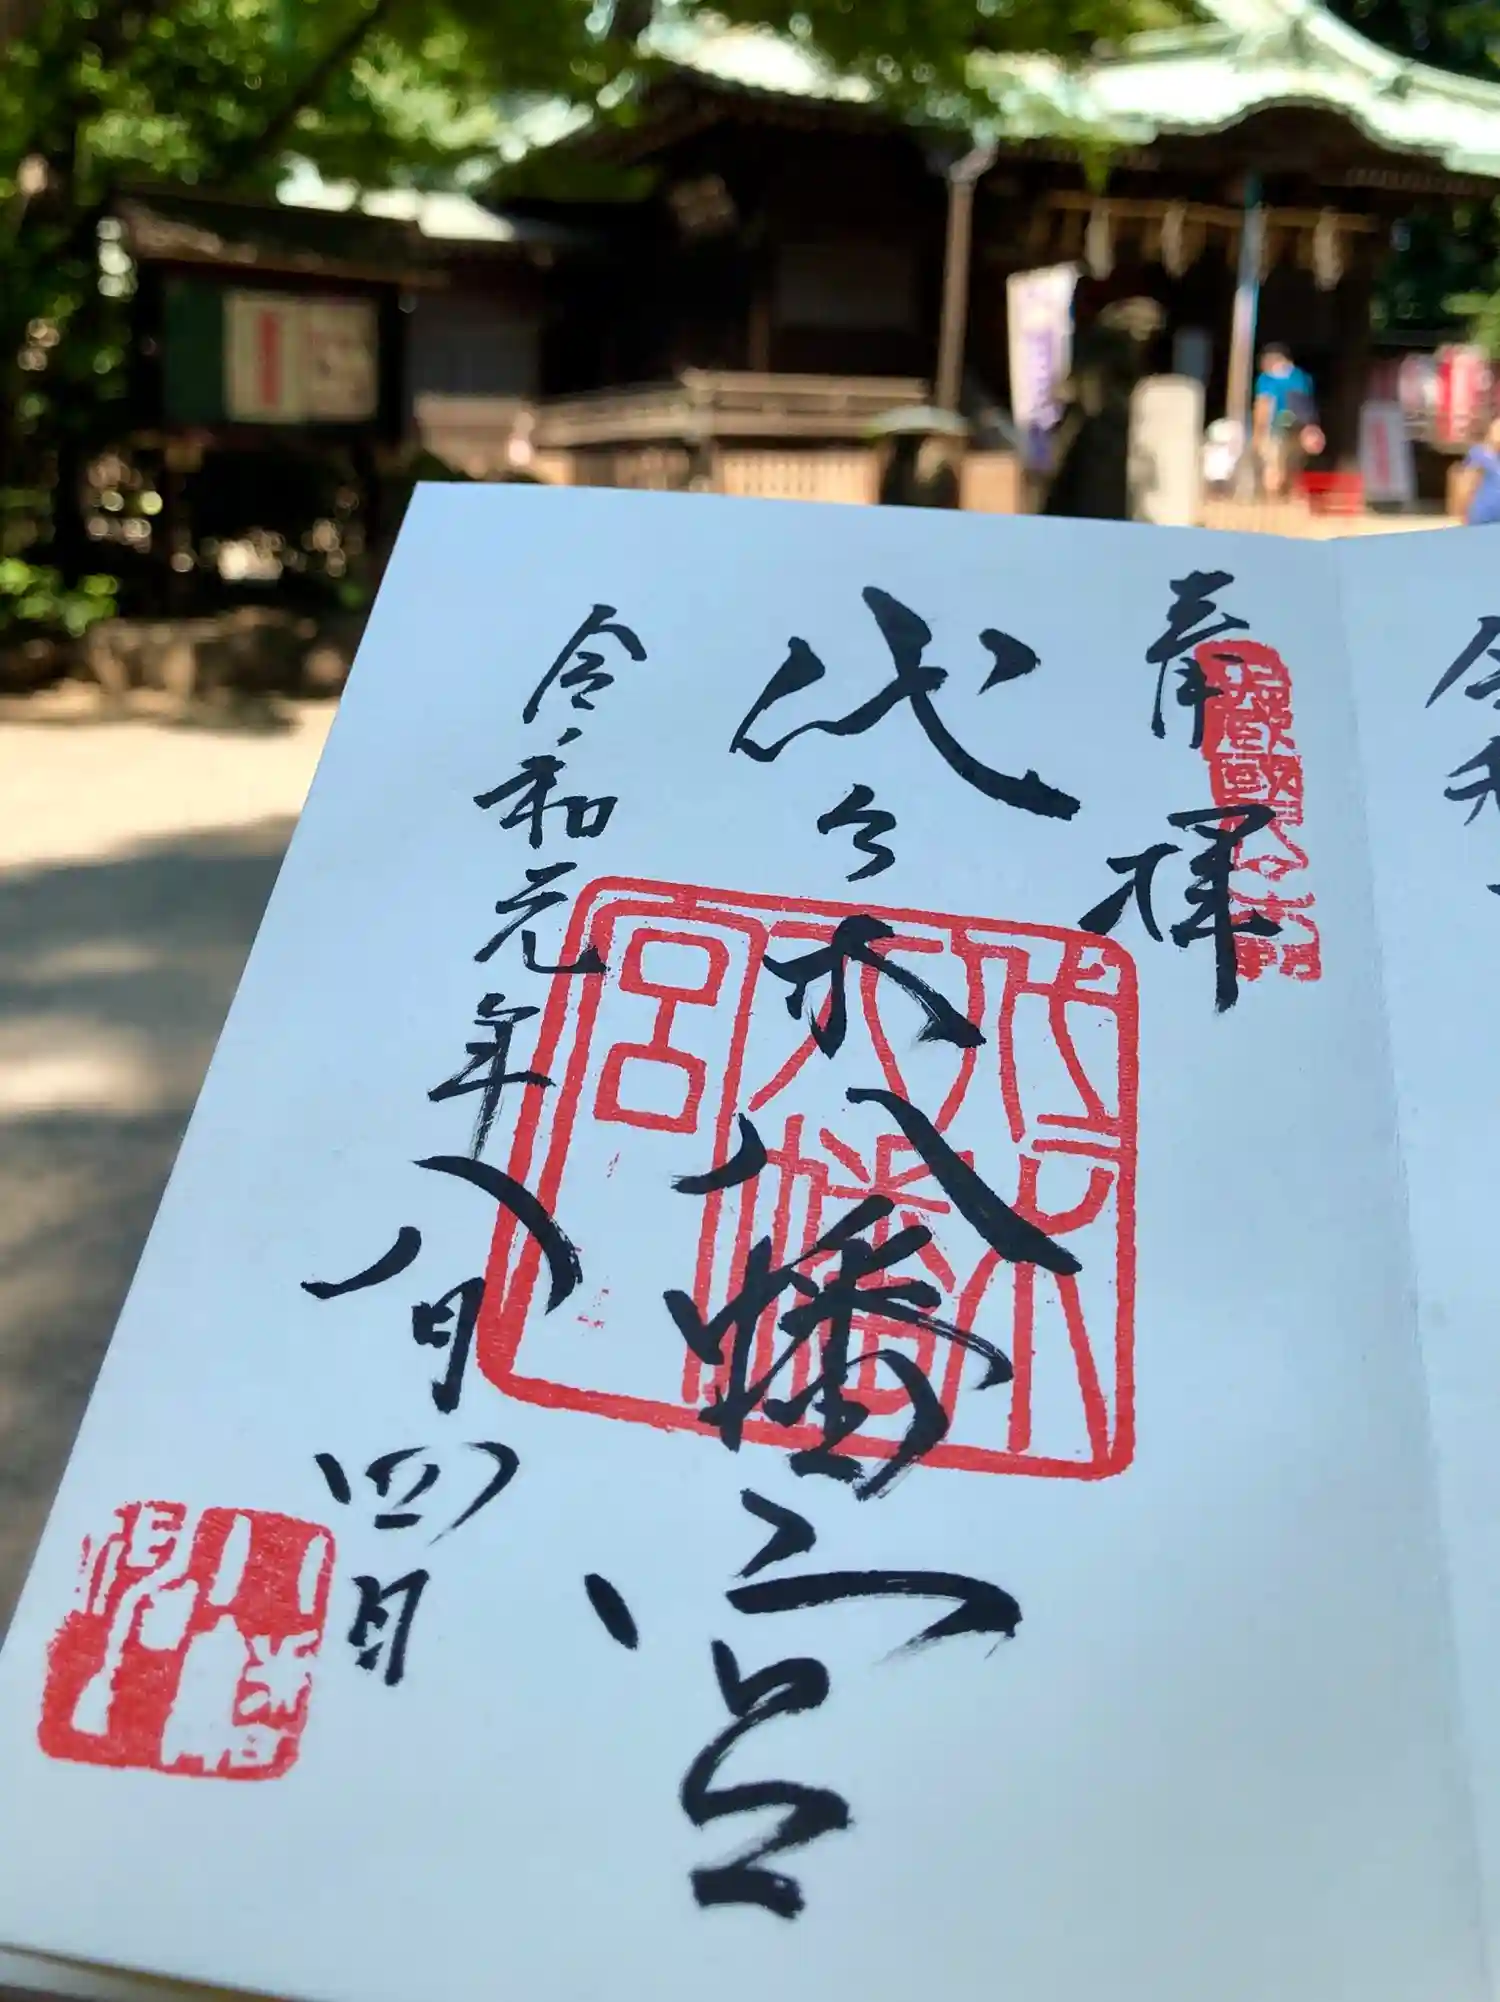 奉拝
代々木八幡宮
代々木八幡宮
令和元年八月四日
令和